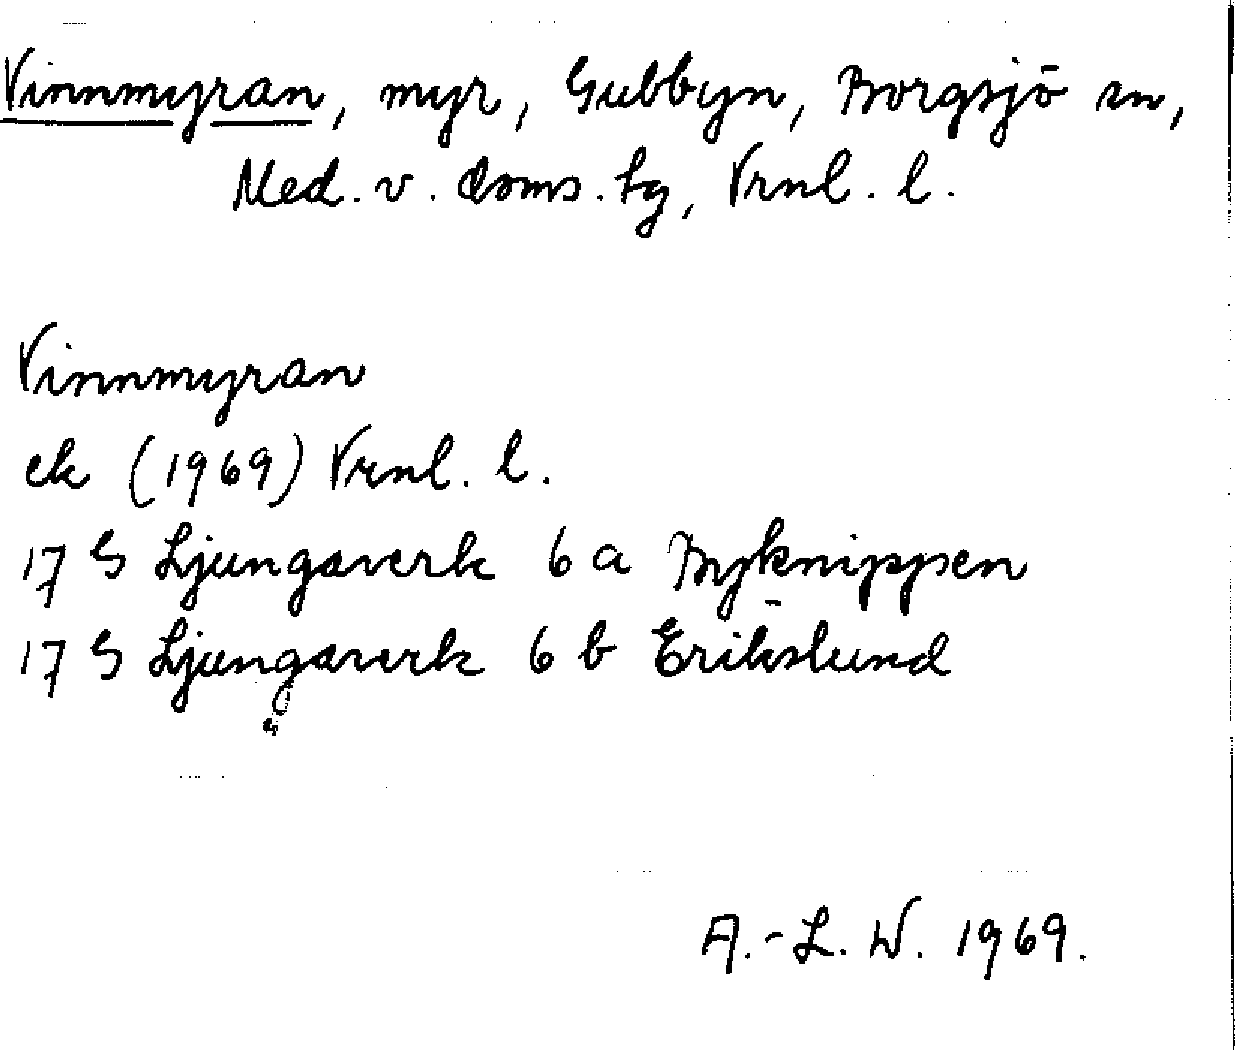 Vinnmyran, myr, Gubbyn, Borgsjö sn,
Med. v. doms. tg, Vrnl. l.
Vinnmyran
ek (1969) Vrnl. l.
17 G Ljungaverk 6 a Byknippen
17 G Ljungaverk 6 b Erikslund
A.-L. W. 1969.